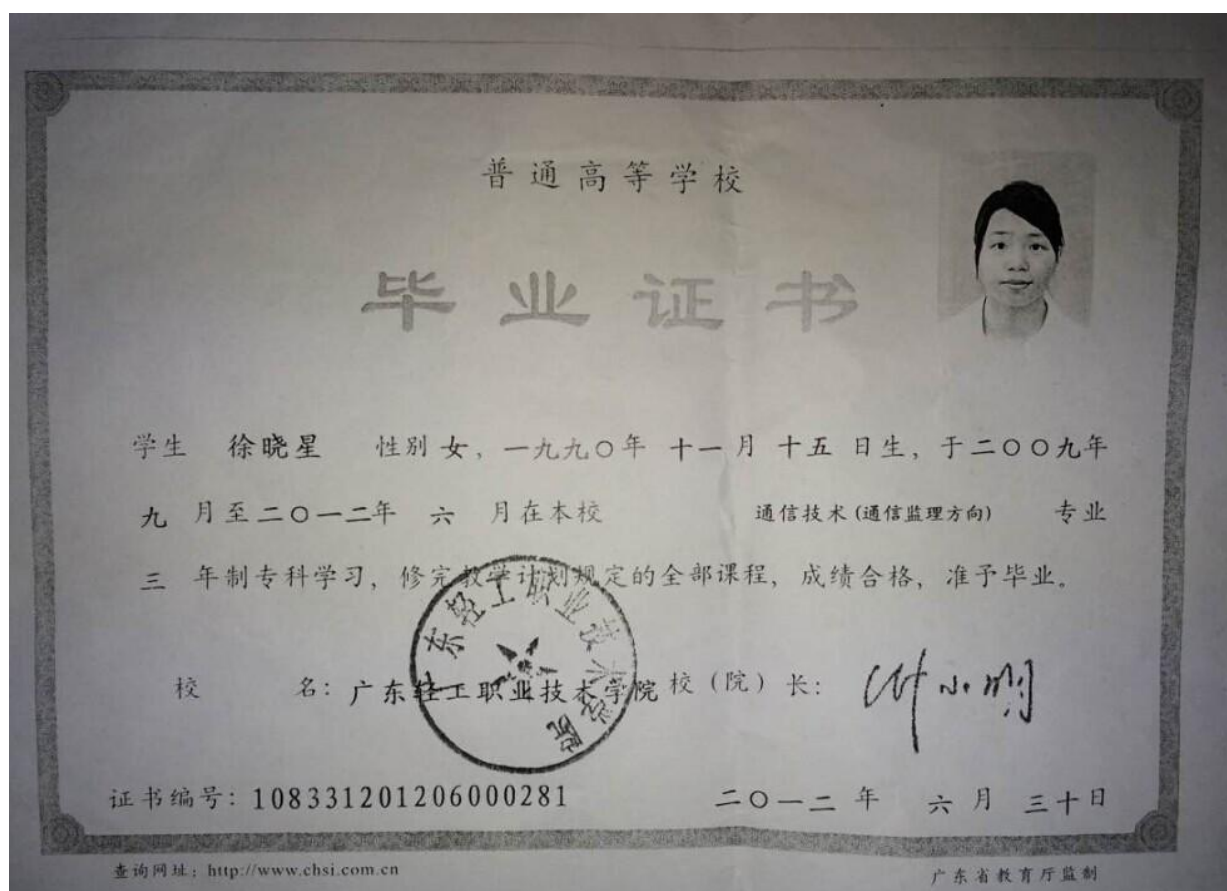 普通高等学校
毕业证书
学生 徐晓星 性别 女，一九九〇年 十一月 十五 日生，于二〇〇九年
九 月至二〇一二年 六 月在本校 通信技术(通信监理方向) 专业
三 年制专科学习，修完教学计划规定的全部课程，成绩合格，准予毕业。
广东轻工职业技术学院
校 名：广东轻工职业技术学院 校（院）长：
证书编号：108331201206000281 二〇一二 年 六 月 三十日
查询网址：http://www.chsi.com.cn 广东省教育厅监制